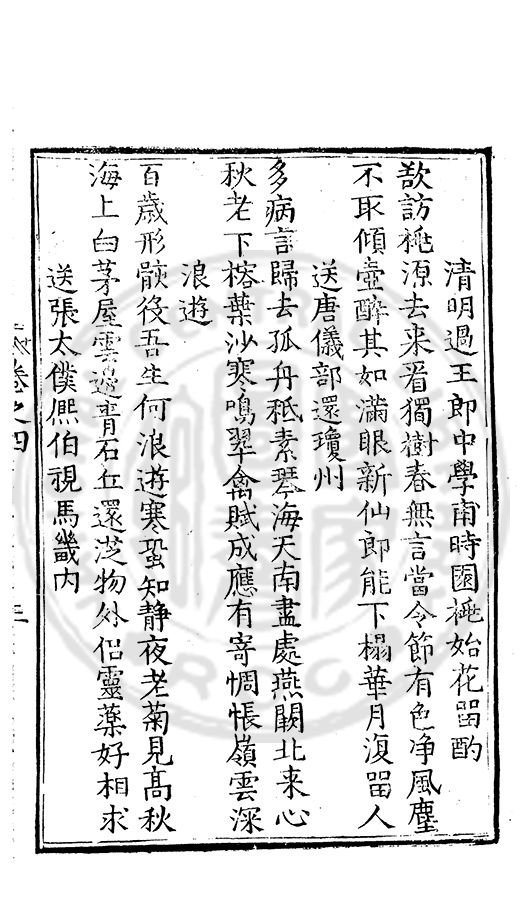 清明過王郎中學甫時園桃始花畱酌
歘訪桃源去来看獨樹春無言當令節有色净風塵
不取傾壺醉其如滿眼新仙郎能下榻華月復畱人
送唐儀部還瓊州
多病言歸去孤舟秪素琴海天南盡處燕闕北来心
秋老下榕葉沙寒鳴翠禽賦成應有寄惆悵嶺雲深
浪遊
百歳形骸役吾生何浪遊寒蛩知静夜老菊見髙秋
海上白茅屋雲邊青石丘還
物外侣靈藥好相求
送張太僕熈伯視馬畿内
卷之四